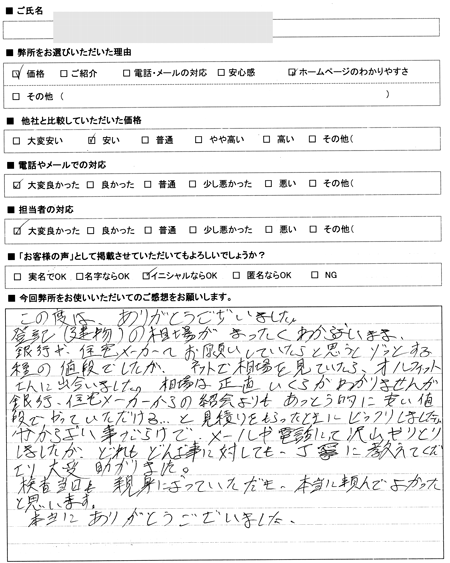 ■ ご氏名
■ 弊所をお選びいただいた理由
☑ 価格 □ ご紹介 □ 電話・メールの対応 □ 安心感 ☑ ホームページのわかりやすさ
□ その他 ( )
■ 他社と比較していただいた価格
□ 大変安い ☑ 安い □ 普通 □ やや高い □ 高い □ その他(
■ 電話やメールでの対応
☑ 大変良かった □ 良かった □ 普通 □ 少し悪かった □ 悪い □ その他(
■ 担当者の対応
☑ 大変良かった □ 良かった □ 普通 □ 少し悪かった □ 悪い □ その他(
■ 「お客様の声」として掲載させていただいてもよろしいでしょうか?
□ 実名でOK □ 名字ならOK ☑ イニシャルならOK □ 匿名ならOK □ NG
■ 今回弊所をお使いいただいてのご感想をお願いします。
この度は、ありがとうございました。
登記(建物)の相場がまったくわからないまま、
銀行や住宅メーカーへお願いしていたらと思うとゾッとする
程の値段でしたが、ネットで相場を見ていたら、オルフィット
さんに出会いました。相場は正直いくらかわかりませんが
銀行、住宅メーカーからの紹介よりもあっとう的に安い値
段でやっていただける…と見積りをもらったときにビックリしました。
分からない事だらけで、メールや電話にて沢山やりとり
しましたが、どれもどんな事に対しても、丁寧に教えてくだ
さり大変助かりました。
検査当日も親身になっていただき、本当に頼んでよかった
と思います。
本当にありがとうございました。